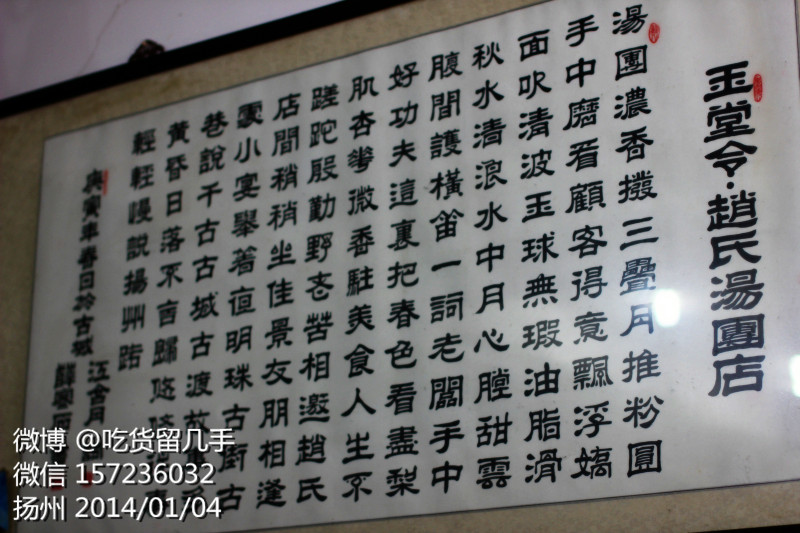 玉堂令·趙氏湯團店
湯團濃香撥三疊月推粉圓
手中磨看顧客得意飄浮嬌
面吹清波玉球無瑕油脂滑
秋水清浪水中月心膛甜雲
腹間護橫笛一詞老闆手中
好功夫這裏把春色看盡梨
肌杏微香駐美食人生不
蹉跎殷勤野老苦相邀趙氏
店間稍稍坐佳景友朋相逢
小宴舉著明珠古街古
巷說千古古城古渡
黃昏日落不言歸悠
輕輕慢說揚州話
庚寅年春日於古城
微博 @吃货留几手
微信 157236032
扬州 2014/01/04